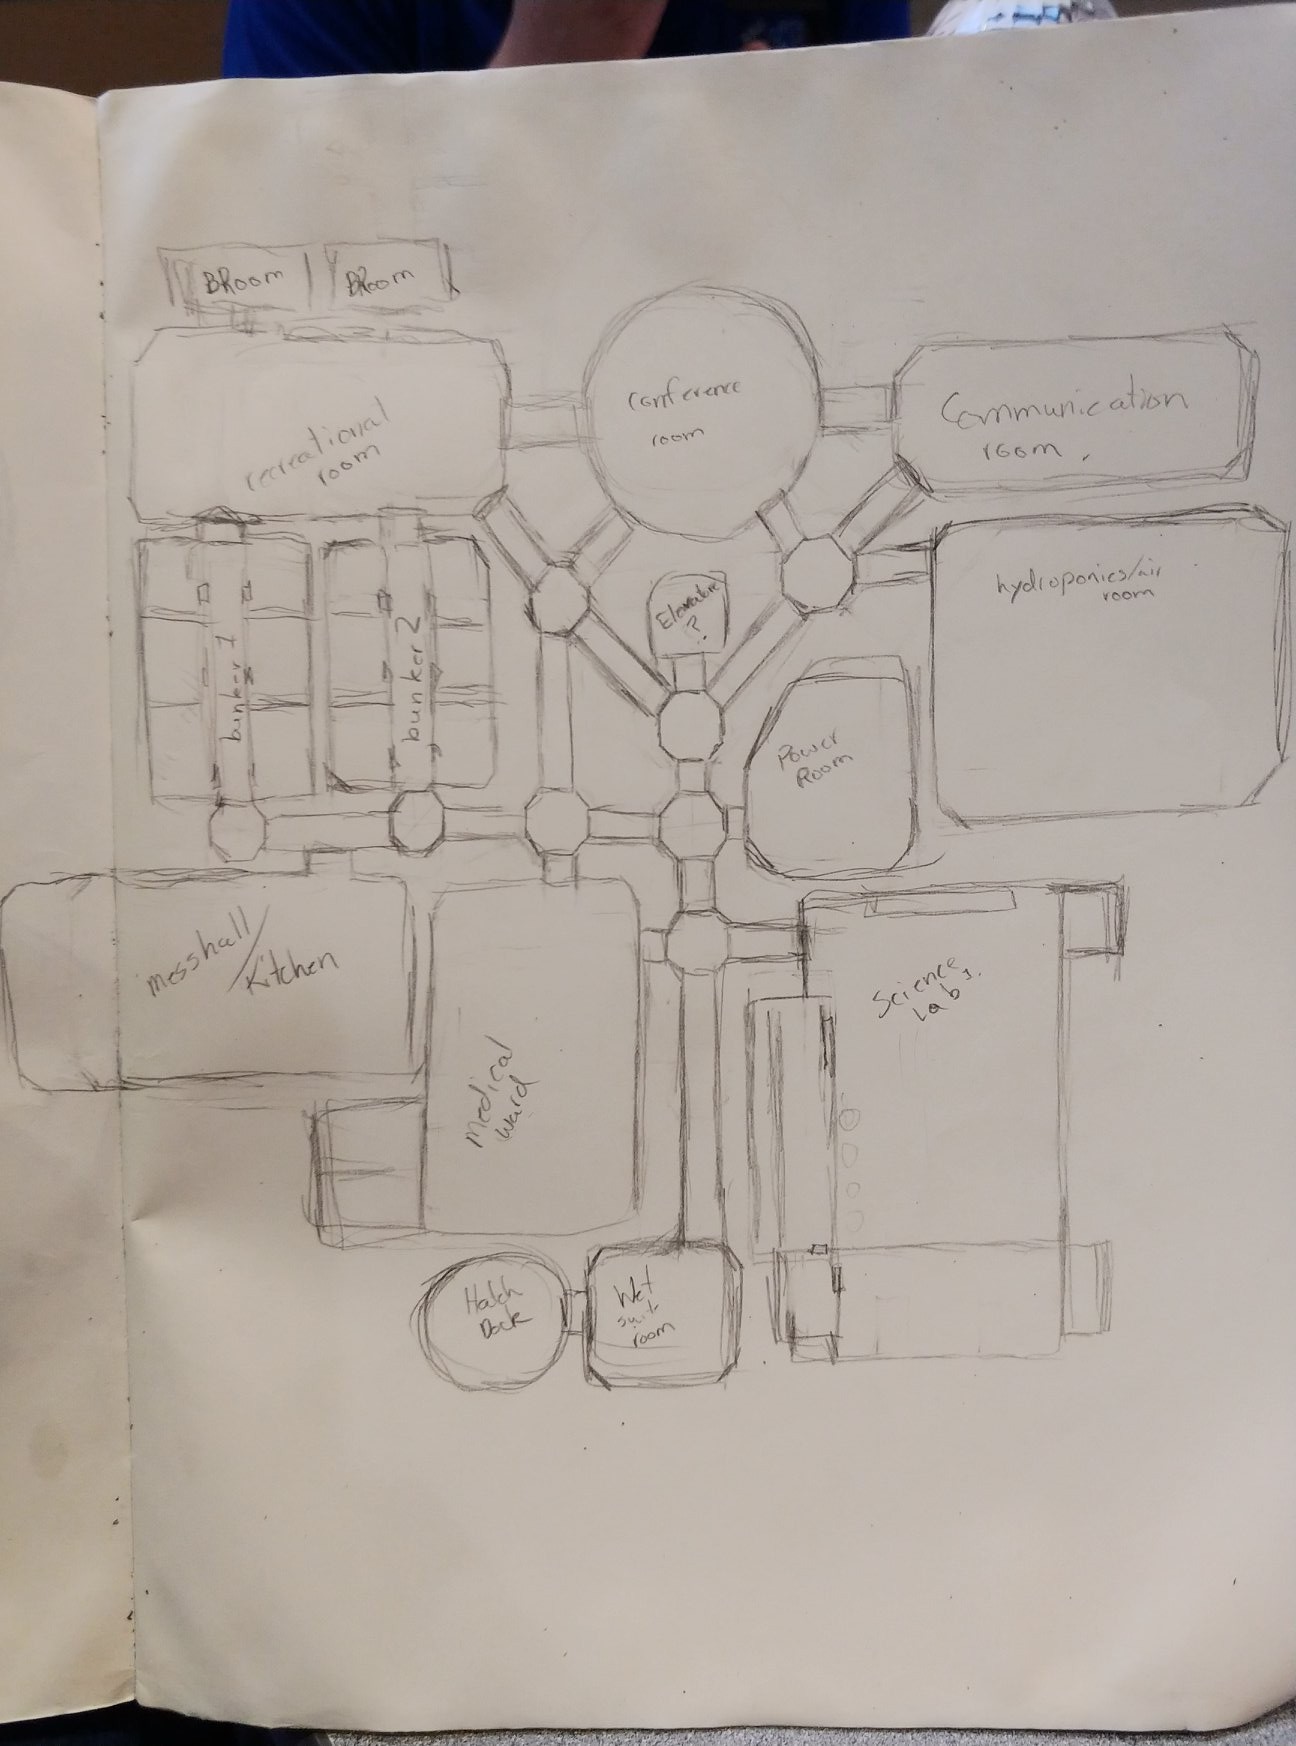 BRoom
BRoom
recreational
room
conference
room
Communication
room.
hydroponics/air
room
Elevator
?
bunker 1
bunker 2
Power
Room
messhall/
Kitchen
Medical
Ward
Science
Labs.
Hatch
Dock
Wet
suit
room